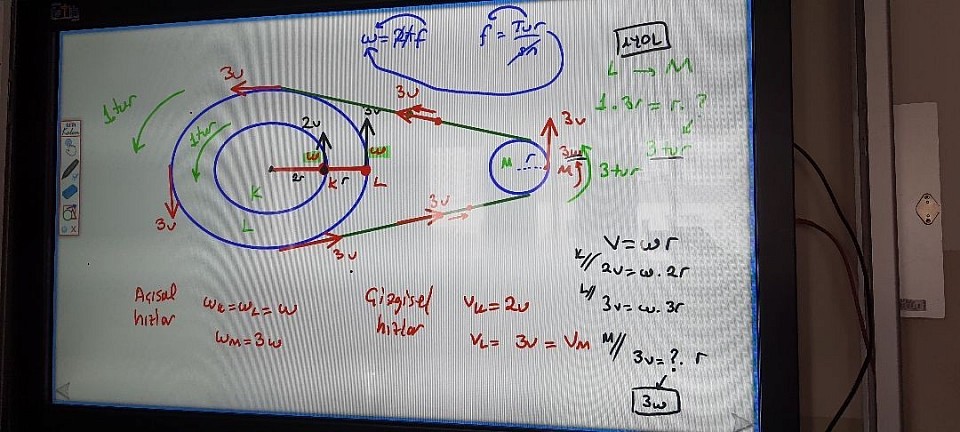 ω = 2πf
f = Tur/sn
1.YOL
L → M
1 . 3r = r . ?
3 tur
1 tur
1 tur
3v
3v
3v
3v
3v
3v
3v
2v
ω
ω
2r
K
r
L
K
L
M
r
M
3ω
3 tur
Açısal hızlar
ωK = ωL = ω
ωM = 3ω
Çizgisel hızlar
VK = 2v
VL = 3v = VM
V = ωr
K// 2v = ω . 2r
L// 3v = ω . 3r
M// 3v = ? . r
3ω